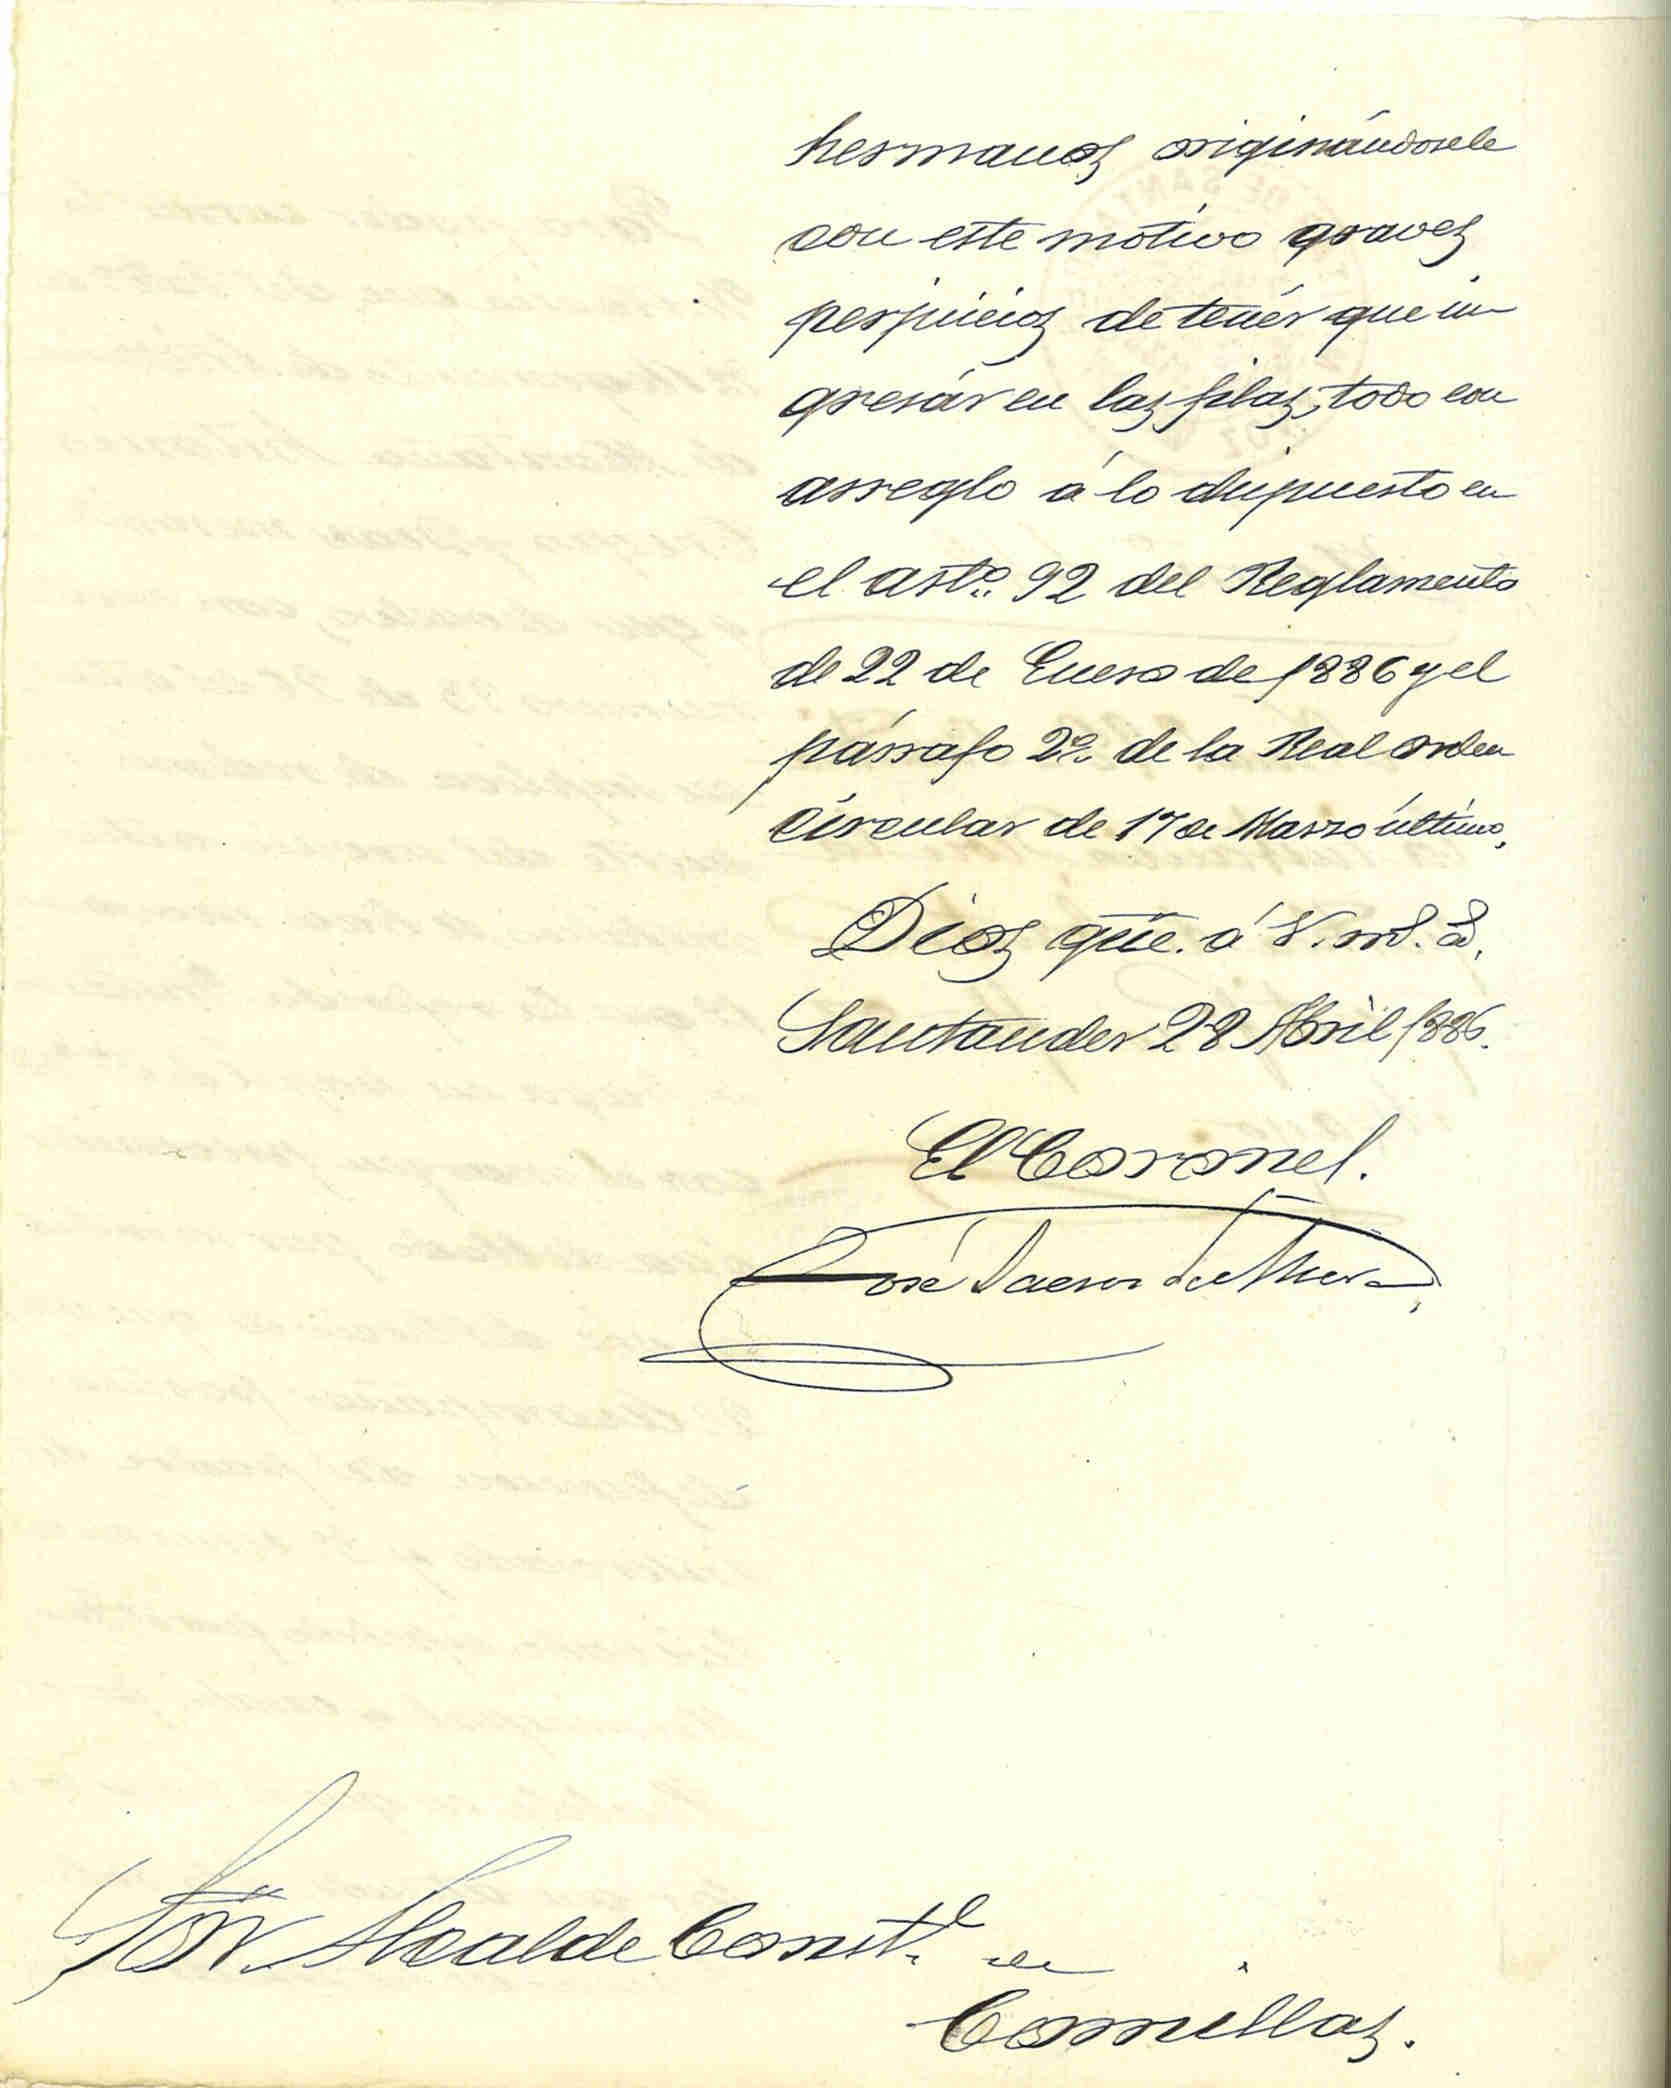 hermanos originándosele
con este motivo graves
perjuicios de tenér que in
gresár en las filas, todo con
arreglo á lo dispuesto en
el artº. 92 del Reglamento
de 22 de Enero de 1886 y el
párrafo 2º. de la Real orden
circular de 17 de Marzo último.
Dios gue. á V. m.s a.s
Santander 28 Abril 1886.
El Coronel.
José
Sor. Alcalde Constl. de
Comillas.